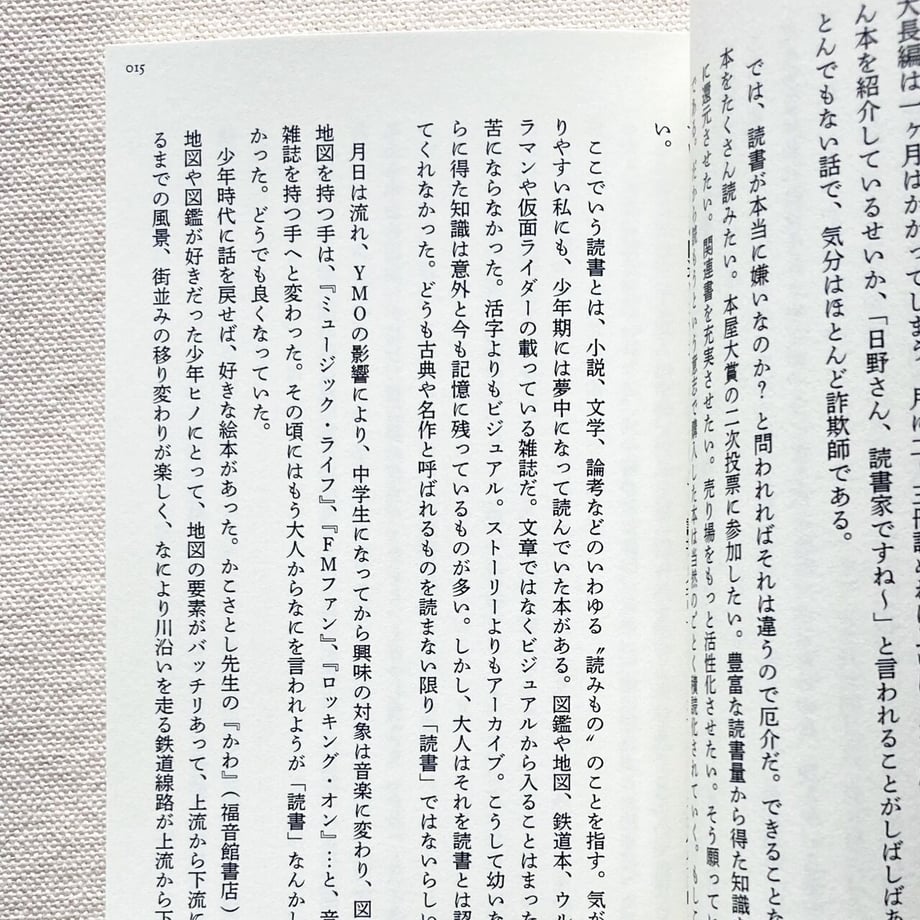 大長編は一ヶ月はかかってしまう
ん本を紹介しているせいか、「日野さん、読書家ですね〜」と言われることがしばしばあ
とんでもない話で、気分はほとんど詐欺師である。
では、読書が本当に嫌いなのか？ と問われればそれは違うので厄介だ。できることな
本をたくさん読みたい。本屋大賞の二次投票に参加したい。豊富な読書量から得た知識
に還元させたい。関連書を充実させたい。売り場をもっと活性化させたい。そう願って
という意志で購入した本は当然のごとく積読化されていく。もし
い。
ここでいう読書とは、小説、文学、論考などのいわゆる〝読みもの〟のことを指す。気が
りやすい私にも、少年期には夢中になって読んでいた本がある。図鑑や地図、鉄道本、ウル
ラマンや仮面ライダーの載っている雑誌だ。文章ではなくビジュアルから入ることはまった
苦にならなかった。活字よりもビジュアル。ストーリーよりもアーカイブ。こうして幼いな
らに得た知識は意外と今も記憶に残っているものが多い。しかし、大人はそれを読書とは認
てくれなかった。どうも古典や名作と呼ばれるものを読まない限り「読書」ではないらしい
月日は流れ、YMOの影響により、中学生になってから興味の対象は音楽に変わり、図
地図を持つ手は、『ミュージック・ライフ』、『FMファン』、『ロッキング・オン』…と、音
雑誌を持つ手へと変わった。その頃にはもう大人からなにを言われようが「読書」なんかし
かった。どうでも良くなっていた。
少年時代に話を戻せば、好きな絵本があった。かこさとし先生の『かわ』（福音館書店）
地図や図鑑が好きだった少年ヒノにとって、地図の要素がバッチリあって、上流から下流に
るまでの風景、街並みの移り変わりが楽しく、なにより川沿いを走る鉄道線路が上流から下
015